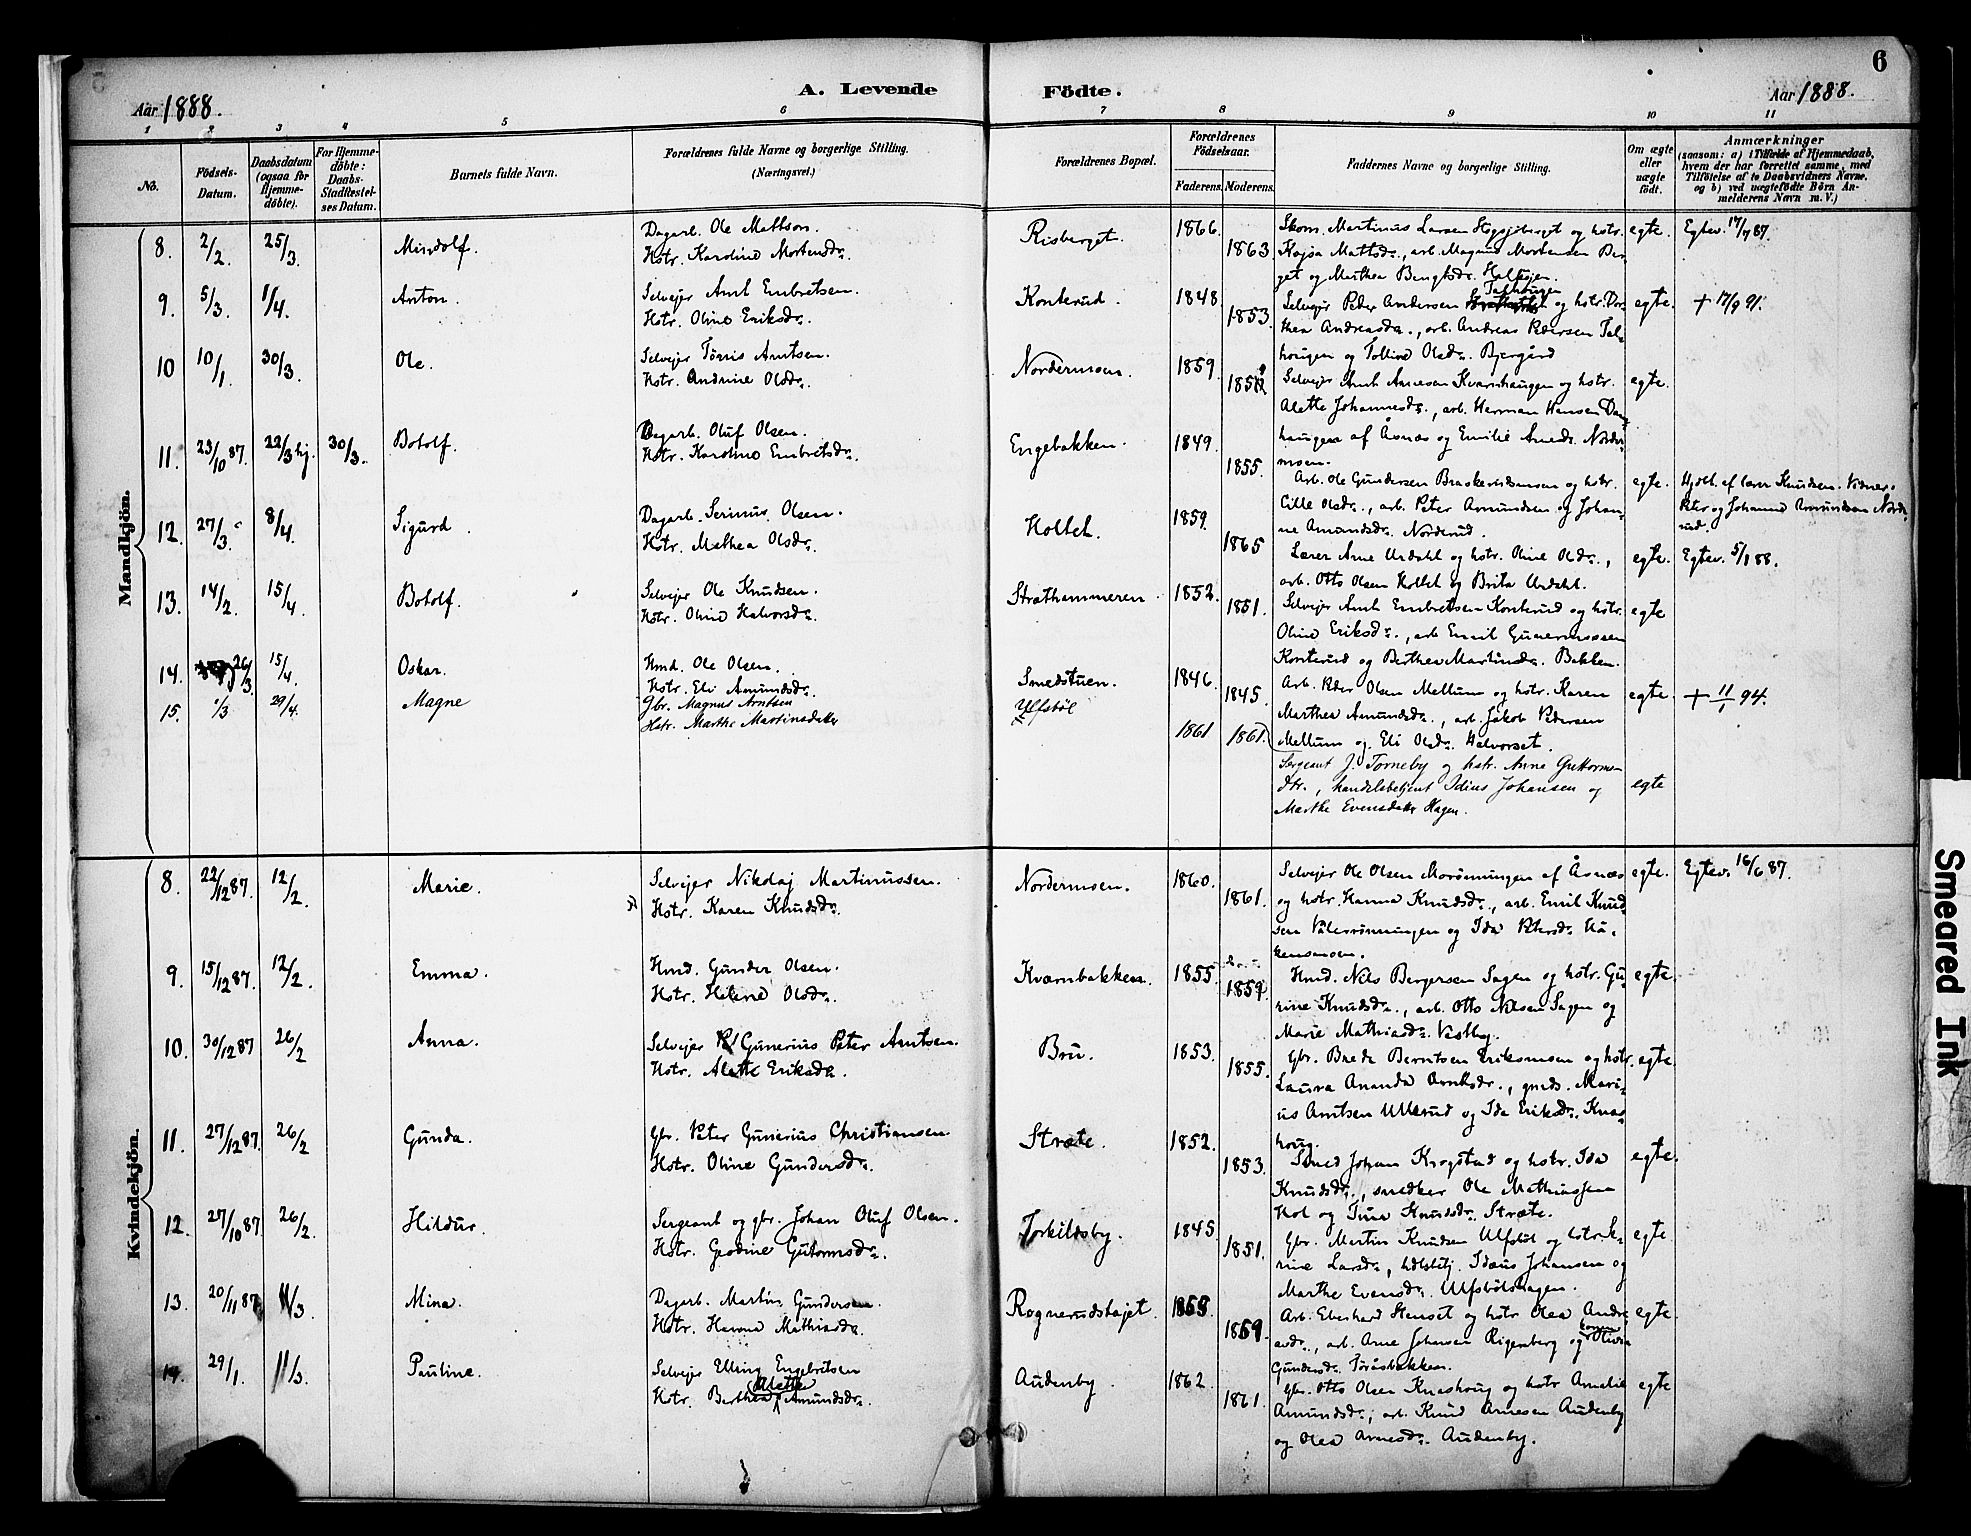 6
A. Levende Födte.
Aar 1888.
Aar 1888.
1 2 3 4 5 6 7 8 9 10 11
No.
Födsels-Datum.
Daabsdatum (ogsaa for Hjemmedöbte).
For Hjemmedöbte: Daabs-Stadfæstelses Datum.
Barnets fulde Navn.
Forældrenes fulde Navne og borgerlige Stilling.
(Næringsvei.)
Forældrenes Bopæl.
Forældrenes Födselsaar.
Faderens. Moderens.
Faddernes Navne og borgerlige Stilling.
Om ægte eller uægte födt.
Anmærkninger
(saasom: a) i Tilfælde af Hjemmedaab, hvem der har forrettet samme, med Tilföielse af to Daabsvidners Navne, og b) ved uægtefödte Börn Anmelderens Navn m. V.)
Mandkjön.
8. 2/2. 25/3. Mindolf. Dagarb. Ole Mattson. Risberget. 1866. Skom. Martinus Larsen Hogsjöberget og hstr. egte. Egtev. 17/7 87.
Hstr. Karoline Mortensdr. 1863 Kajsa Mattsdr., arb. Magnus Mortensen Ber-
get og Marthea Bengtsdr. Holtsjen.
9. 5/3. 1/4. Anton. Selvejer Arnt Embretsen. Konterud. 1848. Selvejer Peder Andersen Talhaugen og hstr. Dor- egte. + 17/9 91.
Hstr. Oline Eriksdr. 1853. thea Andreasdr., arb. Andreas Pedersen Tal-
haugen og Tolline Olsdr. Bjergård
10 10/1. 30/3. Ole. Selvejer Tönis Arntsen. Nordermoen. 1859. Selvejer Arnt Arnesen Kvarnhaugen og hstr. egte.
Hstr. Andrine Olsdr. Alette Johannesdr., arb. Herman Hansen Dam-
haugen af Åsnæs og Emilie Arnesdr. Norder-
moen.
11. 23/10 87. 22/3 hj. 30/3. Botolf. Dagarb. Oluf Olsen. Engebakken. 1849. Arb. Ole Gundersen Braskerudmoen og hstr. egte. Hjdbt. af lærer Knudsen. Vidner:
Hstr. Karoline Embretsdr. 1855. Cille Olsdr., arb. Peter Amundsen og Johan- Peter og Johanne Amundsen Norde-
ne Amundsdr. Norderud. rud.
12. 27/3. 8/4. Sigurd. Dagarb. Serinus Olsen. Holtet. 1859. Lærer Arne Urdahl og hstr. Oline Olsdr., egte. Egtev. 5/1 88.
Hstr. Mathea Olsdr. 1865 arb. Otto Olsen Holtet og Brita Urdahl.
13. 14/2. 15/4. Botolf. Selvejer Ole Knudsen. Strathammeren. 1852. Selvejer Arnt Embretsen Konterud og hstr. egte
Hstr. Oline Halvorsdr. 1851. Oline Eriksdr., arb. Emil Gunermosen
Konterud og Berthea Martinsdr. Bakken.
14. 26/3. 15/4. Oskar. Hmd. Ole Olsen. Smedstuen. 1846. Arb. Peder Olsen Mellum og hstr. Karen egte + 11/1 94.
Hstr. Eli Amundsdr. 1845. Marthea Amundsdr., arb. Jakob Pedersen
Mellum og Eli Olsdr. Halvorset.
15. 1/3 29/4. Magne Gbr. Magnus Arntsen Ulfsböl 1861 1861. Sergeant J. Torneby og hstr. Anne Guttorms- egte
Hstr. Marthe Martinsdatter dtr., handelsbetjent Idius Johansen og
Marthe Evensdatter Hagen.
Kvindekjön.
8. 22/12 87. 12/2. Marie. Selvejer Nikolaj Martinussen. Nordermoen. 1860. Selvejer Ole Olsen Morönningen af Åsnæs egte. Egtev. 16/6 87.
Hstr. Karen Knudsdr. 1861. og hstr. Hanna Knudsdr., arb. Emil Knud-
sen Vålerrönningen og Ida Petersdr. Hå-
kensmoen.
9. 15/12 87. 12/2. Emma. Hmd. Gunder Olsen. Kvarnbakken. 1855. Hmd. Nils Bergersen Sagen og hstr. Gu- egte.
Hstr. Helene Olsdr. 1859 rine Knudsdr., arb. Otto Nilsen Sagen og
Marie Mathiasdr. Vestby.
10. 30/12 87 26/2 Anna. Selvejer Gunerius Peter Arntsen. Bru. 1853. Gbr. Brede Berntsen Eriksmoen og hstr. egte.
Hstr. Alette Eriksdr. 1855. Laura Ananda Arntsdr., gmds. Mari-
us Arntsen Ullerud og Ida Eriksdr. Knas-
houg.
11. 27/12 87. 26/2 Gunda. Gbr. Peter Gunerius Christiansen. Stræte. 1852. Smed Johan Krogstad og hstr. Ida egte.
Hstr. Oline Gundersdr. 1853. Knudsdr., snedker Ole Mathiassen
Hol og Tine Knudsdr. Stræte.
12. 27/10 87 26/2. Hildur. Sergeant og gbr. Johan Oluf Olsen. Torkildsby. 1845. Gbr. Martin Knudsen Ulfsböl og hstr. egte.
Hstr. Geodine Gutormsdr. 1851. rine Larsdr., hdlsbtj. Idæus Johansen og
Marthe Evensdr. Ulfsbölshagen.
13. 20/11 87 11/3 Mina. Dagarb. Martin Gundersen. Rognerudstajet. Arb. Eberhard Stenset og hstr Olea Andre- egte
Hstr. Hanna Mathiasdr. 1859 asdr., arb. Arne Johansen Rigersberg og Oliva
Gundersdr. Toråsbakken.
14. 29/1. 11/3. Pauline. Selvejer Elling Engebretsen Audenby. 1862. Gbr. Otto Olsen Knashoug og hstr Amalie egte
Hstr. Berthea Alette Amundsdr. 1861. Amundsdr., arb. Knud Arnesen Audenby
og Olea Arnesdr. Audenby.
Smeared Ink